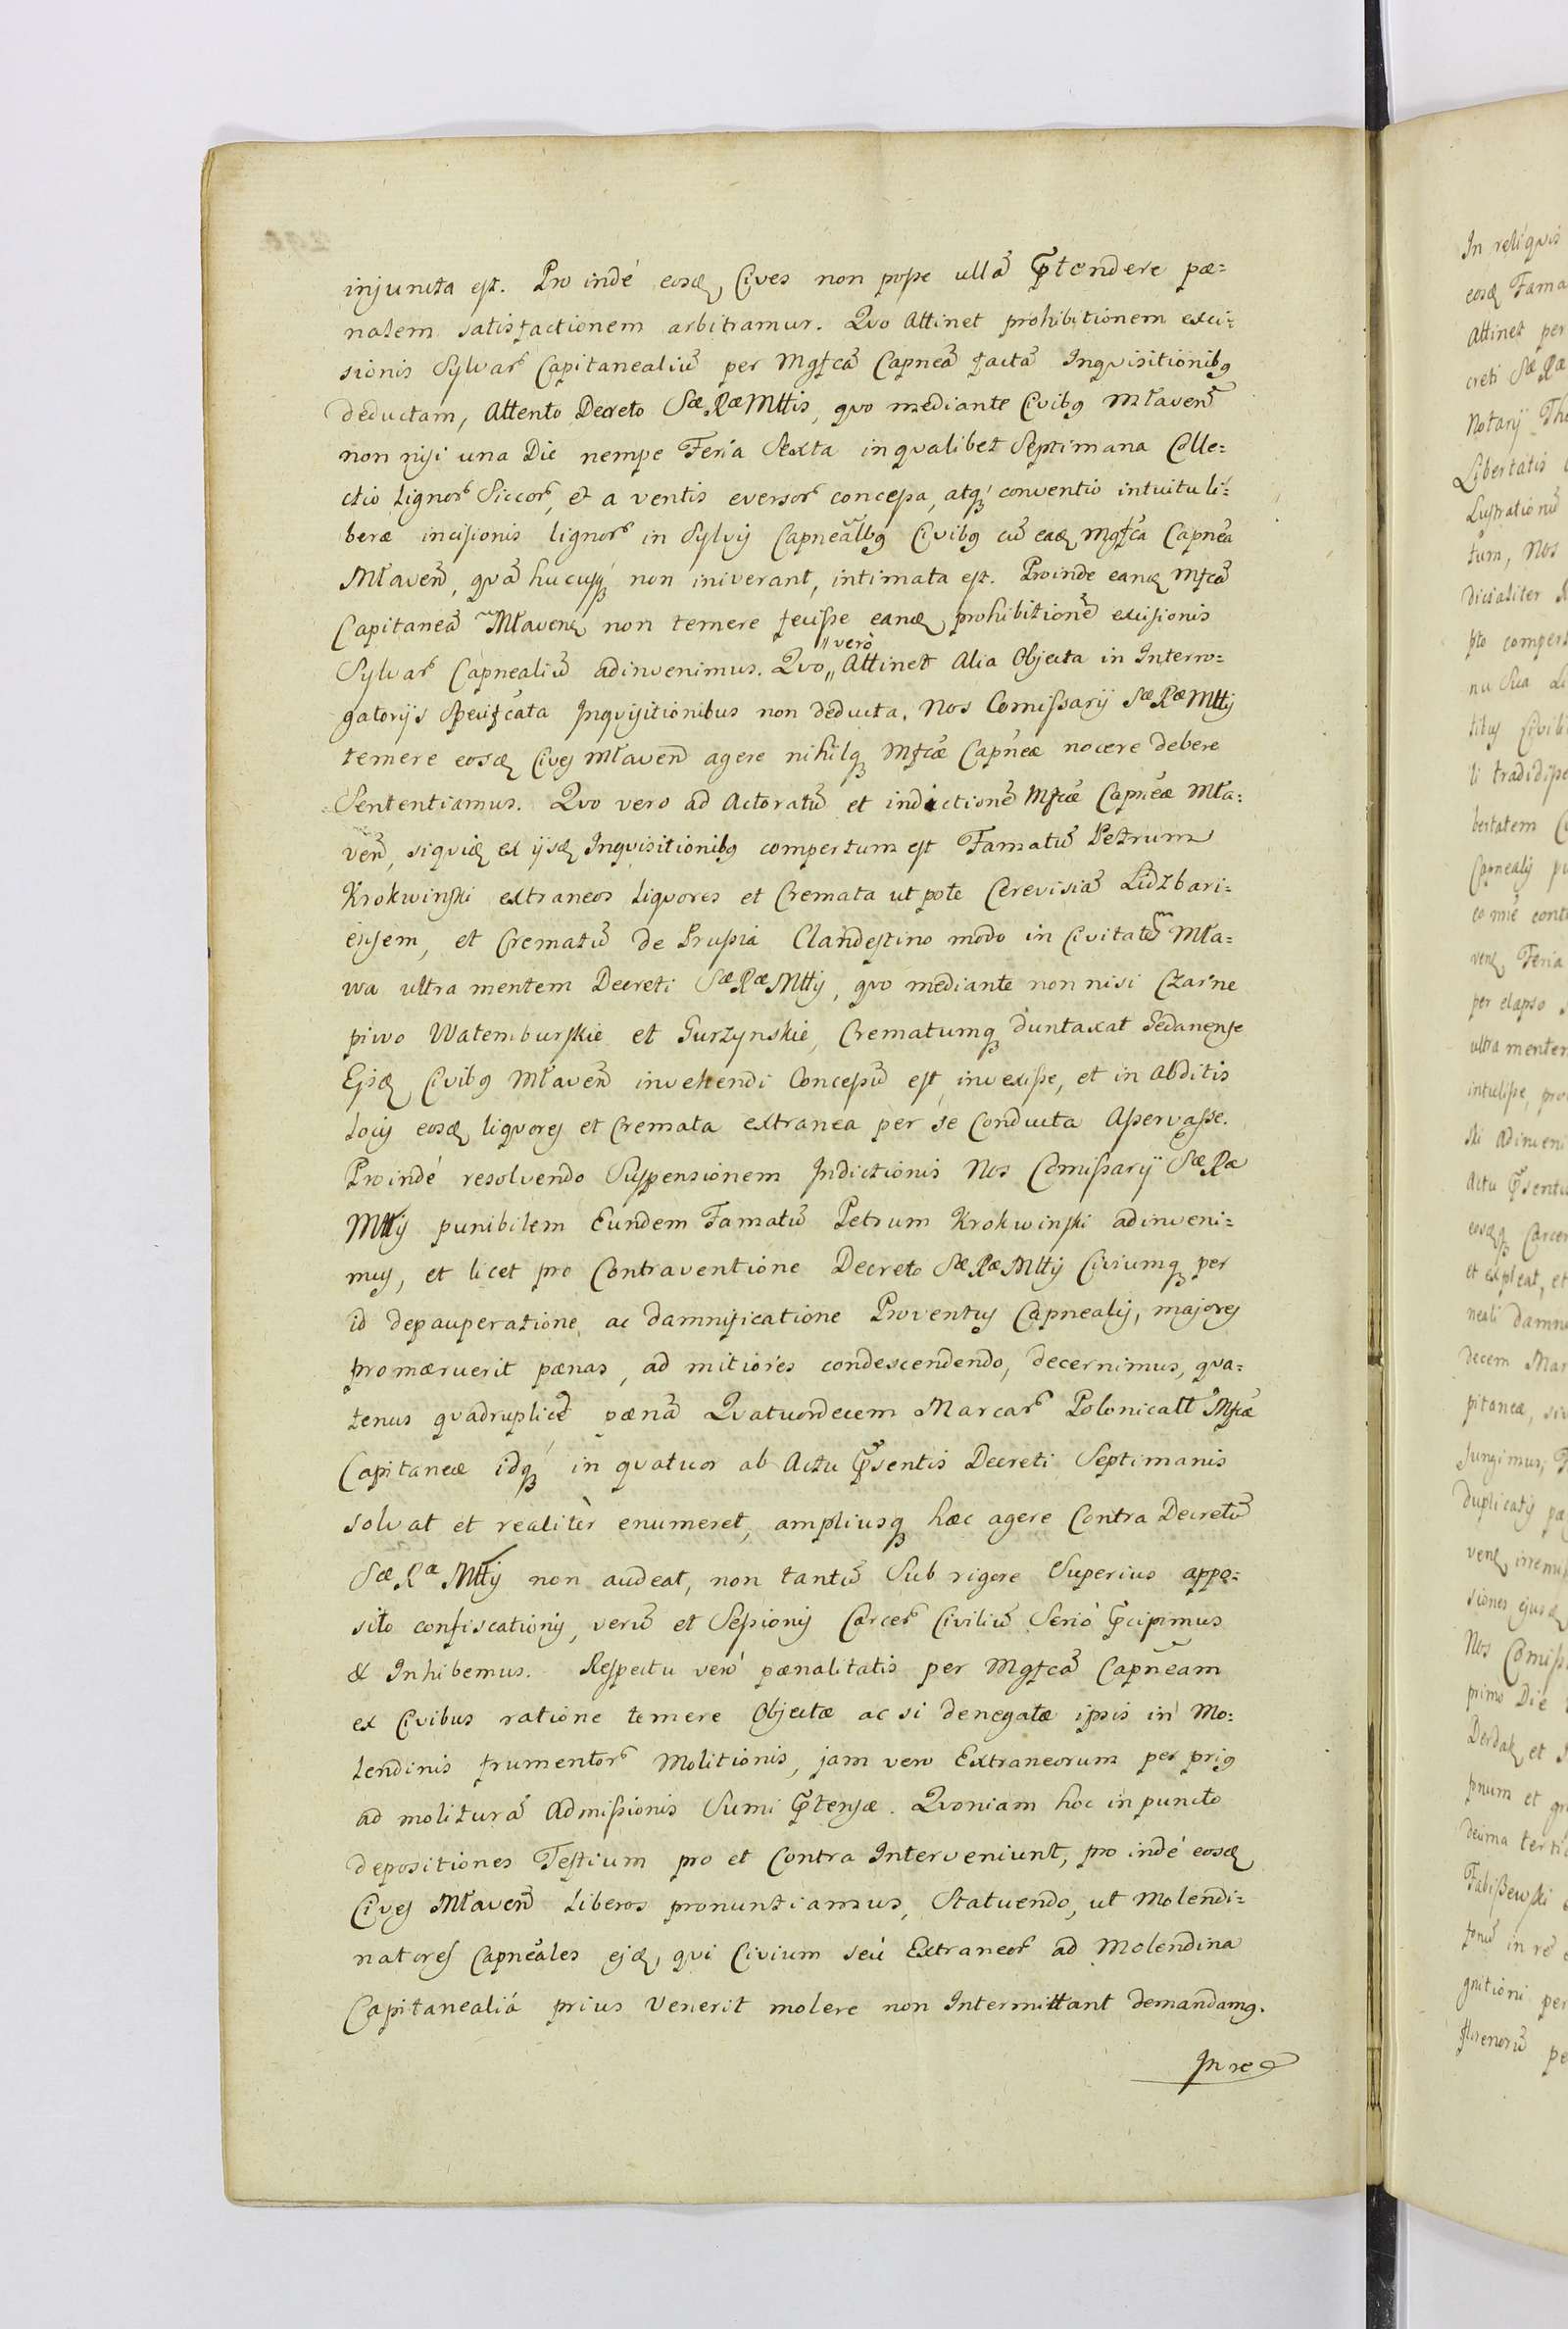 injuncta est. Pro indé eosd. Cives non posse ullā p̄tendere pæ=
nalem satisfactionem arbitramur. Qvo Attinet prohibitionem exci=
sionis Sylvar. Capitanealiū per Mgfcā Capneā factā Inqvisitionibq
deductam, Attento Decreto Sæ Ræ Mttis, qvo mediante Civibq Mławen̄
non nisi una Die nempe Feria Sexta in qvalibet Septimana Colle=
ctio Lignor. Siccor., et a ventis eversor. concessa, atq́ conventio intuitu li=
beræ incisionis lignor. in Sylvis Capnealbq Civibq cū ead. Mgfca Capnea
Mławen̄, qvā hucusq́ non iniverant, intimata est. Proinde eand. Mfcā
Capitaneā Mławen. non temere fecisse eand. prohibitionē excisionis
Sylvar. Capnealiū adinvenimus. Qvo "verò Attinet Alia Objecta in Interro=
gatorijs Specifcata Inqvisitionibus non deducta, Nos Comissarij Sæ Ræ Mttis
temere eosd. Cives Mławen̄ agere nihilq. Mfcæ Capneæ nocere debere
Sententiamus. Qvo vero ad Actoratū et indictionē Mfcæ Capneæ Mła=
wen̄, siqvid. ex ijsd. Inqvisitionibq compertum est Famatū Petrum
Krokwinski extraneos Liqvores et Cremata ut pote Cerevisiā Lidzbari=
ensem, et Crematū de Prussia Clandestino modo in Civitatē Mła=
wa ultra mentem Decreti Sæ Ræ Mttis, qvo mediante non nisi Czarne
piwo Watemburskie et Gurzynskie, Crematumq. duntaxat Gedanense
Ejsd. Civibq Mławen̄ invehendi Concessū est, invexisse, et in Abditis
Locis eosd. liqvores et Cremata extranea per se Conducta Asservasse.
Proindé resolvendo Suspensionem Indictionis Nos Comissarij Sæ Ræ
Mttis punibilem Eundem Famatū Petrum Krokwinski adinveni=
mus, et licet pro Contraventione Decreto Sæ Ræ Mttis Civiumq. per
id depauperatione, ac damnificatione Proventus Capnealis, majores
promæruerit pænas, ad mitiores condescendendo, decernimus, qva=
tenus qvadruplicē pænā Qvatuordecem Marcar. Polonicall Mfcæ
Capitaneæ idq́ in qvatuor ab Actu p̄sentis Decreti Septimanis
solvat et realitèr enumeret, ampliusq. hæc agere Contra Decretū
Sæ Ræ Mttis non audeat, non tantū Sub rigore Superius appo=
sito confiscationis, verū et Sessionis Carcer. Civiliū Serió p̄cipimus
& Inhibemus. Respectu veró pænalitatis per Mgfcā Capneam
ex Civibus ratione temere Objectæ ac si denegatæ ipsis in Mo=
lendinis frumentor. Molitionis, jam vero Extraneorum per priq
ad moliturā Admissionis Sumi p̄tensæ. Qvoniam hoc in puncto
depositiones Testium pro et Contra Interveniunt, pro indé eosd.
Cives Mławen̄ Liberos pronuntiamus, Statuendo, ut Molendi=
natores Capneales ejd., qvi Civium seú Extraneor. ad Molendina
Capitanealia prius Venerit molere non Intermittant demandamq.
In re
In reliqvis
eosd. Fama
Attinet per
creti Sæ Ræ
Notarij Tho
Libertatis
Lustrationū
tum, Nos
dicialiter
pto compert
titus Civili
li tradidisse
bertatem
Capnealis
ven. Feria
per elapso
ultra mentem
intulisse, pro
ski Adinveni
Actu p̄sentis
eosdq. Carcer
et expleat, et
neali damn
decem Mar
pitaneæ, si
Jungimus,
duplicatis pæ
ven. irremis
siones ejusd.
Nos Comiss
primo Die
Derdak. et
decima terti
Fabiszewski
gnitioni per
florenorū pe